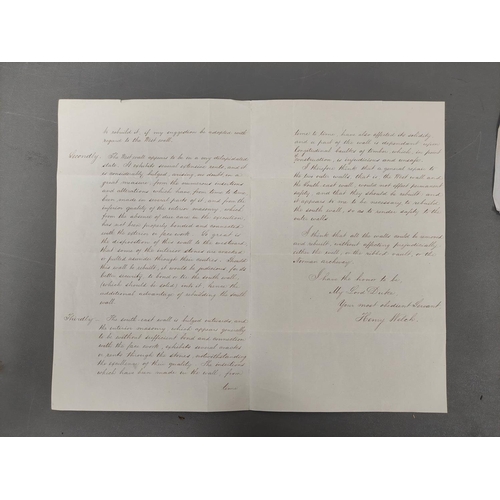 to rebuild it, if my suggestion be adopted with
regard to the West wall.
Secondly. The West wall appears to be in a very dilapidated
state. It exhibits several extensive rents, and it
is considerably bulged, arising no doubt in a
great measure from the numerous insertions
and alterations which have from time to time
been made in several parts of it, and from the
inferior quality of the interior masonry, which
from the absence of due care in the operation,
has not been properly bonded and connected
with the exterior or face work. So great is
the disposition of this wall to fall outward,
that some of the exterior stones are cracked
or pulled asunder through their centres. Should
this wall be rebuilt, it would be judicious for its
better security, to bond or tie the south wall,
(which should be solid) into it, hence the
additional advantage of rebuilding the south
wall.
Thirdly. The south east wall is bulged outwards and
the interior masonry which appears generally
to be without sufficient bond and connection
with the face work, exhibits several cracks
or rents through the stones notwithstanding
the excellency of their quality. The insertions
which have been made in the wall, from
time
time to time, have also affected its solidity
and a part of the wall is dependent upon
longitudinal baulks of timber which, in point
construction, is injudicious and unsafe.
I therefore think that a general repair to
the two outer walls that is the West wall and
the South east wall, would not effect permanent
safety, and that they should be rebuilt, and
it appears to me to be necessary to rebuild
the south wall, so as to render safety to the
outer walls.
I think that all the walls could be removed
and rebuilt, without affecting prejudicially
either the wall, or the
I have the honor to be,
My Lord Duke
Your most obedient Servant
Henry Welch.